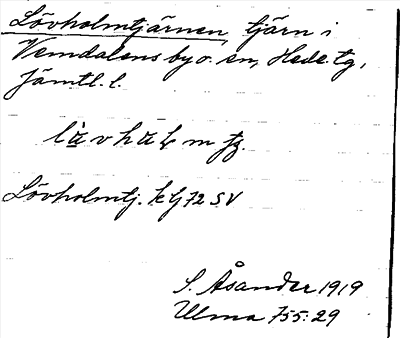 Lövholmtjärnen, tjärn i
Vemdalens by o. sn, Hede tg,
Jämtl. l.
Lövholmtj. k bl 72 SV
S. Åsander 1919
Ulma 755:29